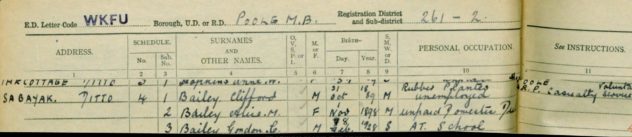 E.D. Letter Code WKFU Borough, U.D. or R.D. POOLE M.B. Registration District and Sub-district 261-2
ADDRESS. SCHEDULE. No. Sub. No. SURNAMES AND OTHER NAMES. O. V. S. P. or I. M. or F. BIRTH— Day. Year. S. M. W. or D. PERSONAL OCCUPATION. See INSTRUCTIONS.
1 2 3 4 5 6 7 8 9 10 11
COTTAGE DITTO 3 1
SABAYAK. DITTO 4 1 Bailey Clifford M 31 Oct 18 89 M Rubber Planter unemployed POOLE A.R.P. Casualty Service
2 Bailey M. F Nov 1898 M unpaid Domestic
3 Bailey Gordon M Feb 1928 S AT School